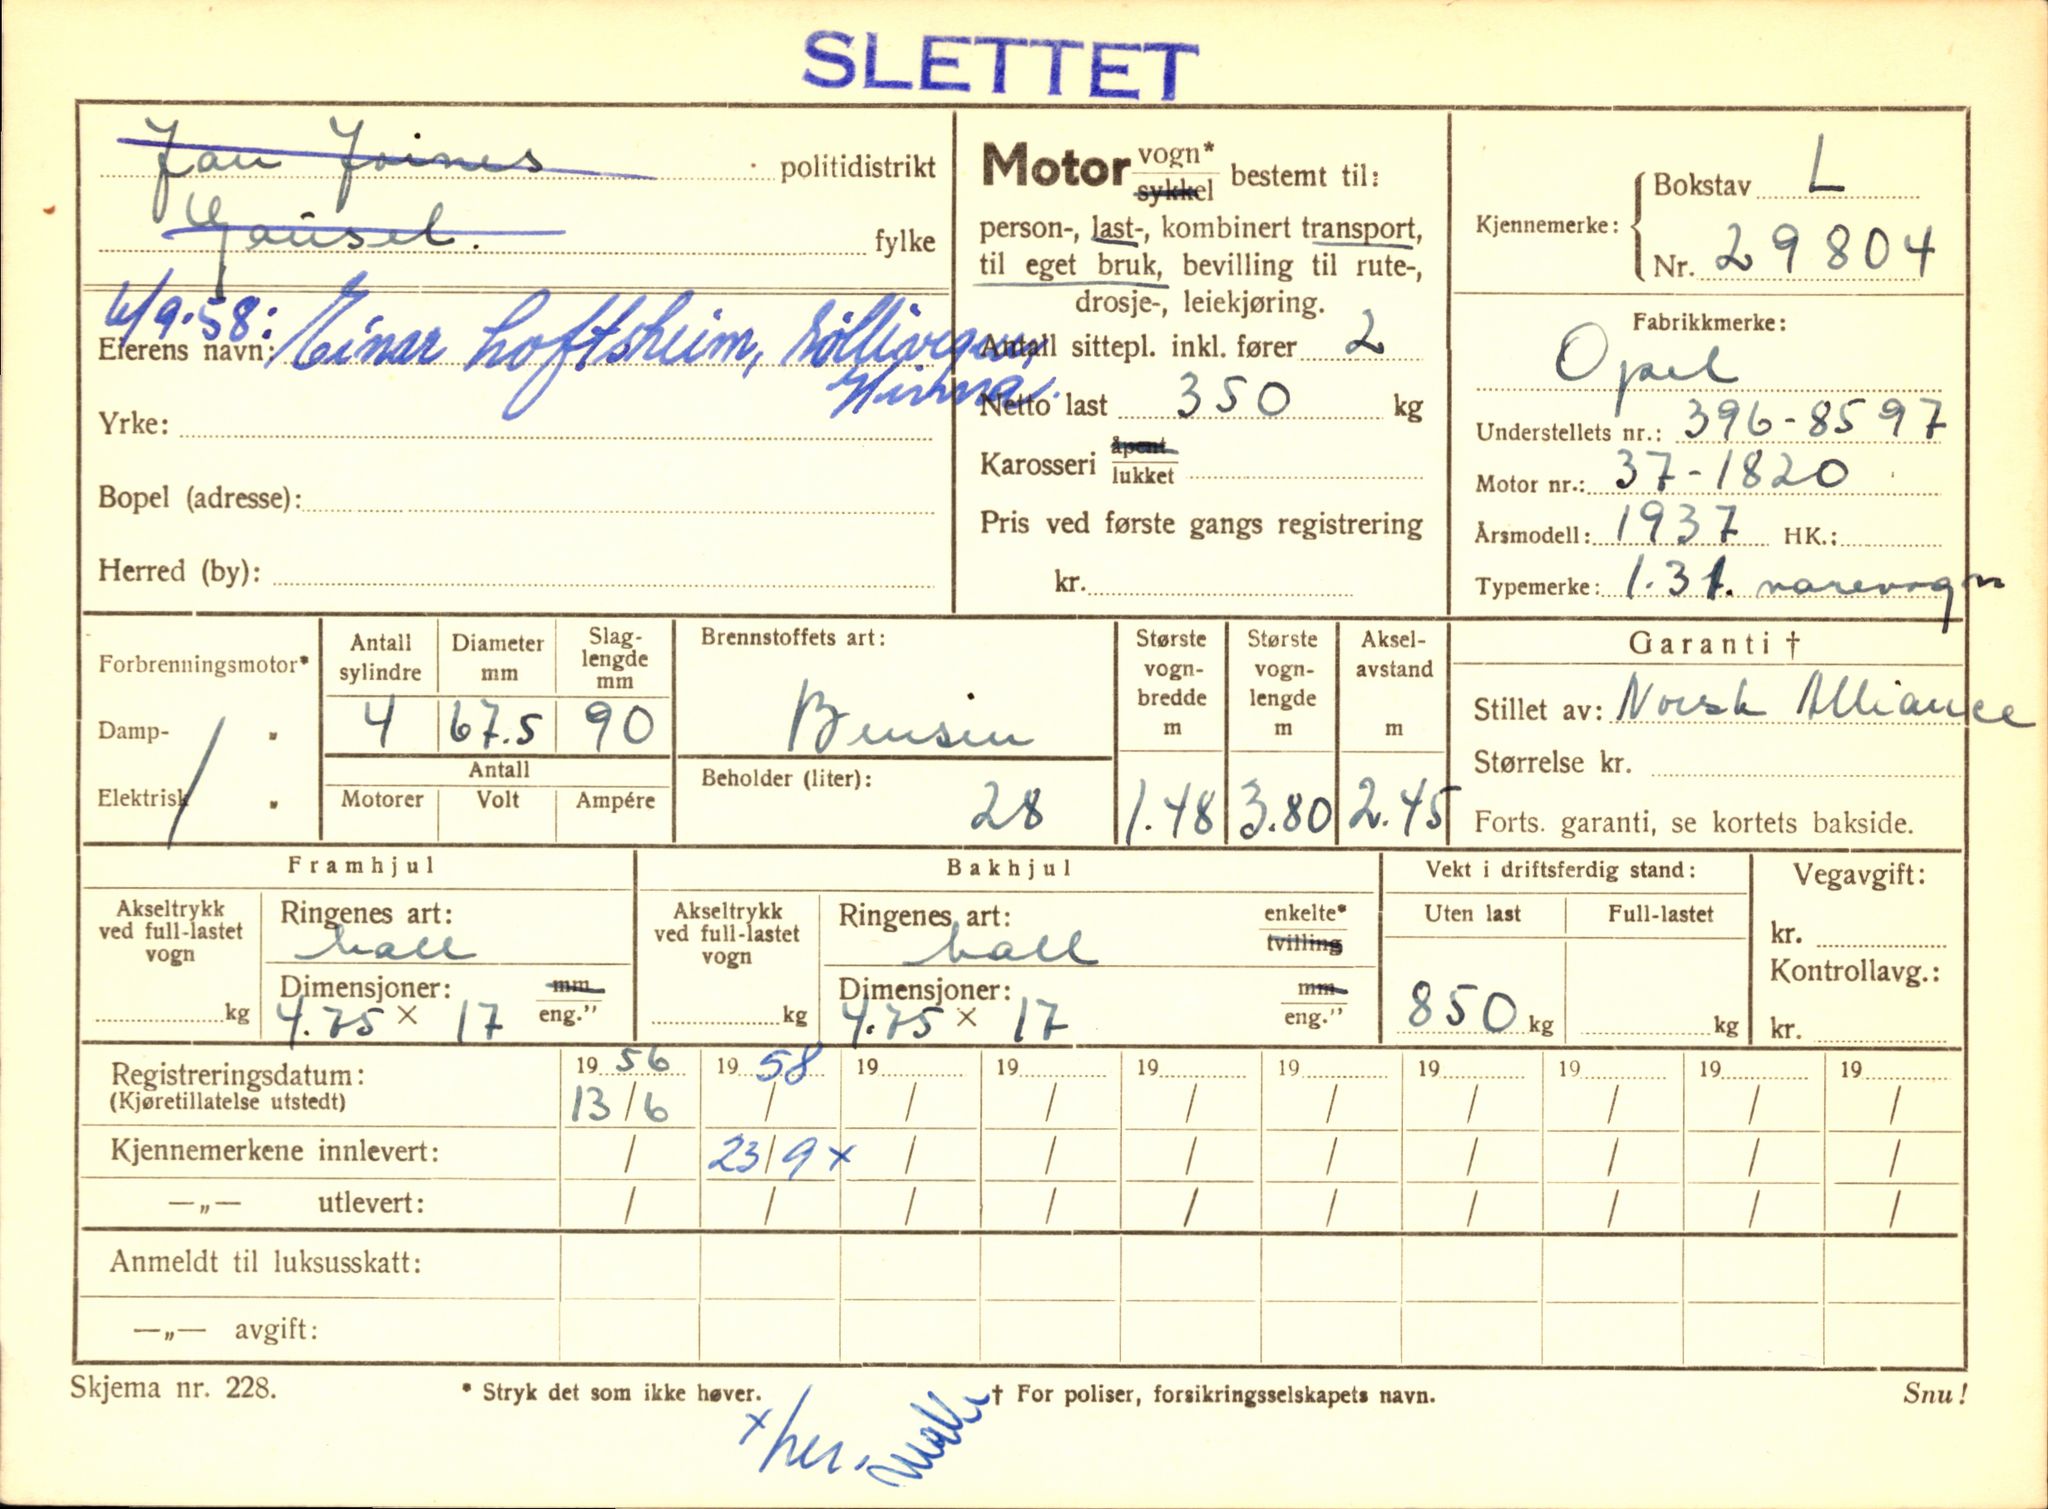 SLETTET
Jan Joines politidistrikt
Gausel. fylke
6/9-58: Einar Loftsheim,
Eierens navn:
Yrke:
Bopel (adresse):
Herred (by):
Motor vogn* sykkel bestemt til:
person-, last-, kombinert transport,
til eget bruk, bevilling til rute-,
drosje-, leiekjøring.
Antall sittepl. inkl. fører 2
Netto last 350 kg
Karosseri åpent lukket
Pris ved første gangs registrering
kr.
Kjennemerke: Bokstav L
Nr. 29804
Fabrikkmerke:
Opel
Understellets nr.: 396-8597
Motor nr.: 37-1820
Årsmodell: 1937 HK.:
Typemerke: 1.3 l. varevogn
Forbrenningsmotor*
Damp- "
Elektrisk "
Antall sylindre Diameter mm Slag-lengde mm
4 67.5 90
Antall
Motorer Volt Ampére
Brennstoffets art:
Bensin
Beholder (liter):
28
Største vogn-bredde m
1.48
Største vogn-lengde m
3.80
Aksel-avstand m
2.45
Garanti †
Stillet av: Norsk Alliance
Størrelse kr.
Forts. garanti, se kortets bakside.
Framhjul
Akseltrykk ved full-lastet vogn
kg
Ringenes art:
ball
Dimensjoner: mm eng."
4.75 × 17
Bakhjul
Akseltrykk ved full-lastet vogn
kg
Ringenes art: enkelte* tvilling
ball
Dimensjoner: mm eng."
4.75 × 17
Vekt i driftsferdig stand:
Uten last Full-lastet
850 kg kg
Vegavgift:
kr.
Kontrollavg.:
kr.
Registreringsdatum: 19 56 19 58 19 19 19 19 19 19 19 19
(Kjøretillatelse utstedt) 13/6 / / / / / / / / /
Kjennemerkene innlevert: / 23/9 x / / / / / / / /
—„— utlevert: / / / / / / / / / /
Anmeldt til luksusskatt:
—„— avgift:
Skjema nr. 228. * Stryk det som ikke høver. † For poliser, forsikringsselskapets navn. Snu!
x her.